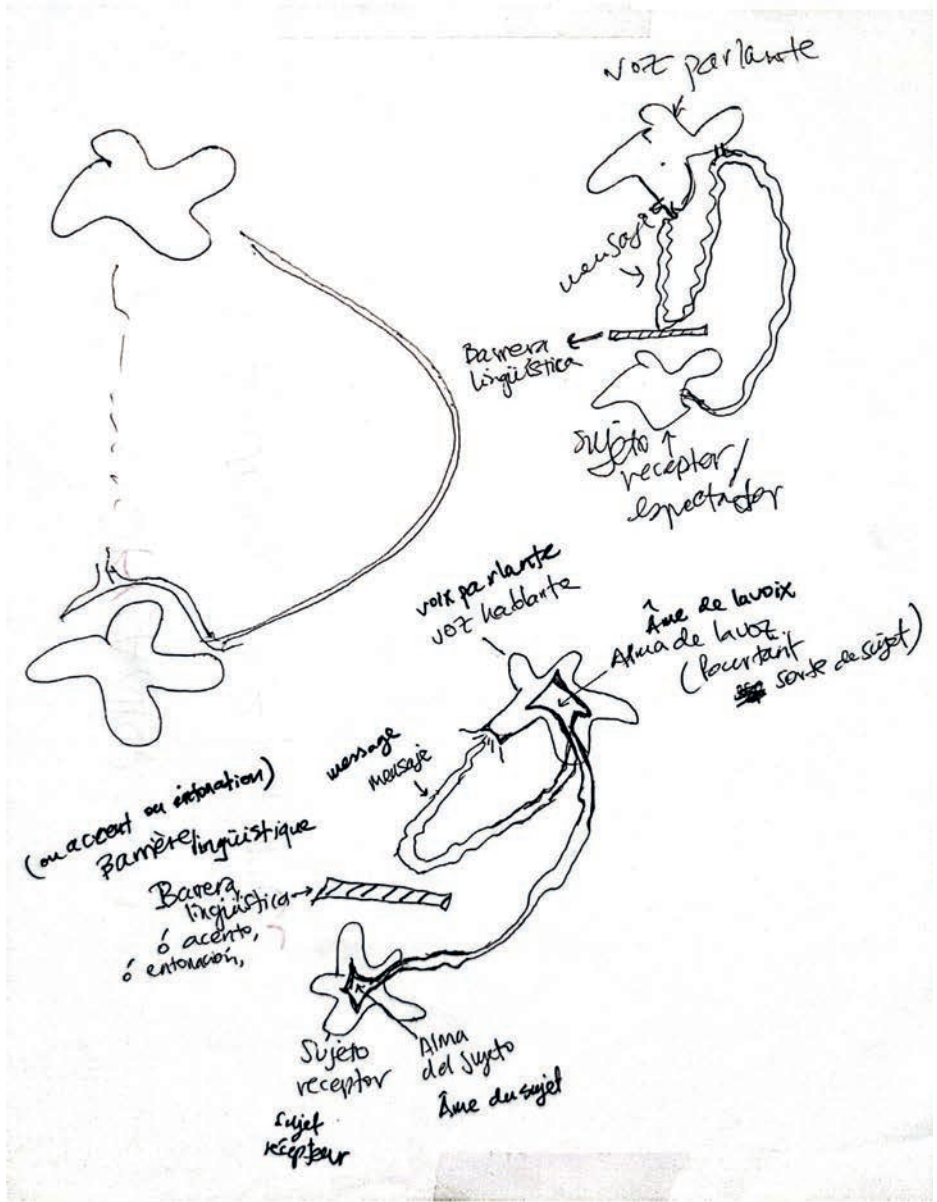 voz parlante
mensaje
Barrera
lingüística
sujeto
receptor/
espectador
voix parlante
voz hablante
Âme de la voix
Alma de la voz
(Pourtant
sorte de sujet)
message
mensaje
(ou accent ou intonation)
Barrière linguïstique
Barera
lingüística
ó acento,
ó entonación,
Sujeto
receptor
Alma
del sujeto
Âme du sujet
sujet
récepteur